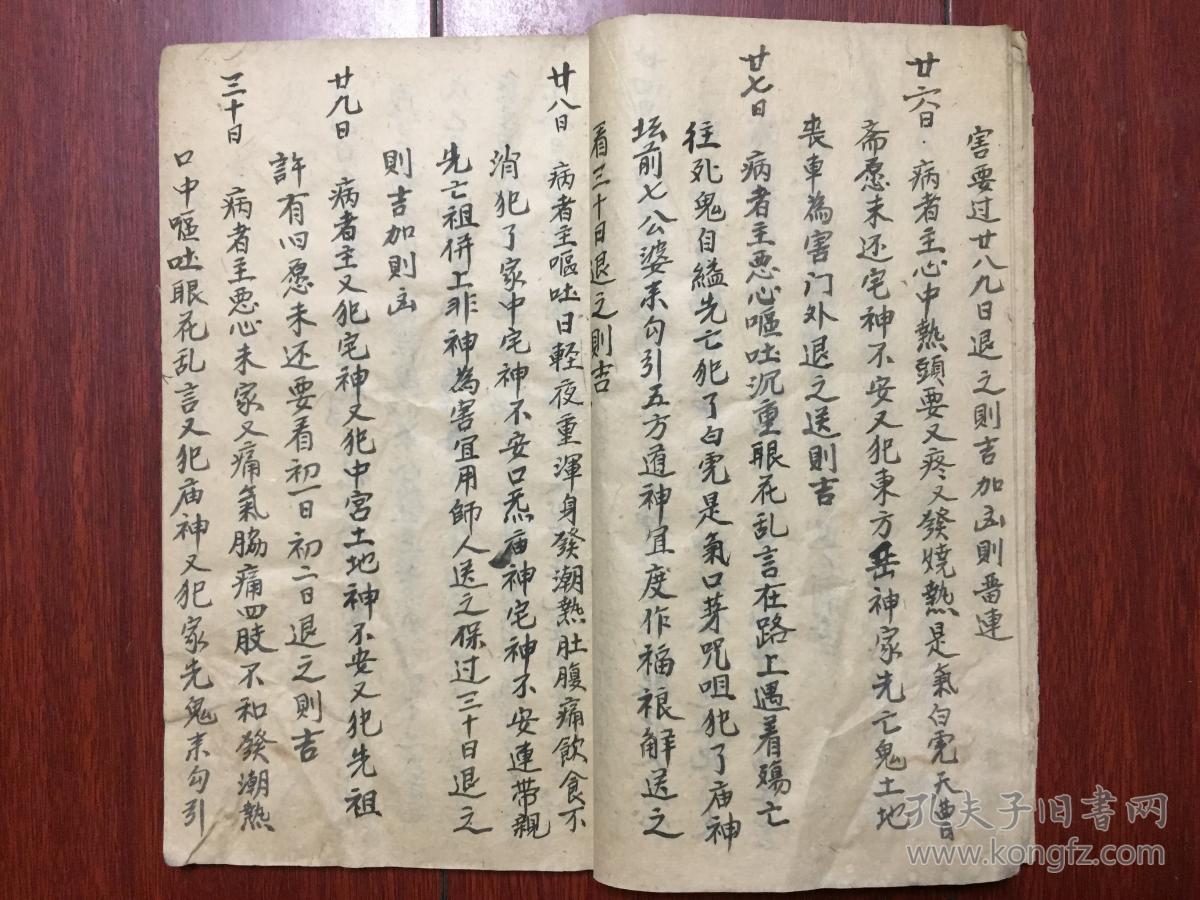 害要过廿八九日退之则吉加凶則啚連
廿六日病者主心中热頭要又疼又發燒熱是氣白虎天曹
斋愿未还宅神不安又犯東方岳神家先亡鬼土地
丧車為害门外退之送則吉
廿七日病者主悪心嘔吐沉重眼花乱言在路上遇着殤亡
往死鬼自縊先亡犯了白虎是氣口芽咒咀犯了庙神
坛前七公婆来勾引五方道神宜度作福禳解送之
看三十日退之則吉
廿八日病者主嘔吐日軽夜重渾身發潮熱肚腹痛飲食不
消犯了家中宅神不安口炁庙神宅神不安連带親
先亡祖併上非神為害宜用師人送之保过三十日退之
則吉加則凶
廿九日病者主又犯宅神又犯中宮土地神不安又犯先祖
許有旧愿未还要看初一日初二日退之則吉
三十日病者主悪心未家又痛氣脇痛四肢不和發潮熱
口中嘔吐眼花乱言又犯庙神又犯家先鬼来勾引
孔夫子旧书网
www.kongfz.com